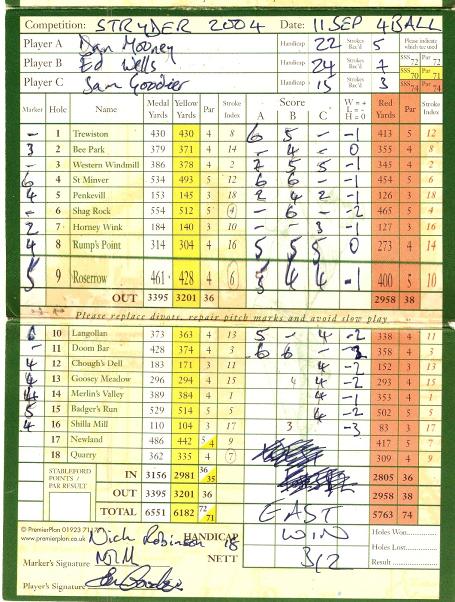 Competition: STRYDER 2004 Date: 11 SEP 4BALL
Player A Dan Mooney Handicap 22 Strokes Rec'd 5 Please indicate which tee used
Player B Ed Wells Handicap 24 Strokes Rec'd 7 SSS 72 Par 72 SSS 70 Par 71
Player C Sam Goodier Handicap 15 Strokes Rec'd 3 SSS 74 Par 74
Marker Hole Name Medal Yards Yellow Yards Par Stroke Index Score A B C W = + L = - H = 0 Red Yards Par Stroke Index
- 1 Trewiston 430 430 4 8 6 5 - -1 413 5 12
3 2 Bee Park 379 371 4 14 - 4 - 0 355 4 8
- 3 Western Windmill 386 378 4 2 7 5 5 -1 345 4 2
6 4 St Minver 534 493 5 12 6 6 - -1 454 5 6
4 5 Penkevill 153 145 3 18 2 4 2 -1 126 3 18
- 6 Shag Rock 554 512 5 4 - 6 - -2 465 5 4
2 7 Horney Wink 184 140 3 10 - - 3 -1 127 3 16
4 8 Rump's Point 314 304 4 16 5 5 5 0 273 4 14
5 9 Roserrow 461 428 4 6 5 4 4 -1 400 5 10
OUT 3395 3201 36 2958 38
Please replace divots, repair pitch marks and avoid slow play
6 10 Langollan 373 363 4 13 5 - 4 -2 338 4 11
- 11 Doom Bar 428 374 4 3 6 6 - 358 4 3
4 12 Chough's Dell 183 171 3 11 4 -2 152 3 13
4 13 Goosey Meadow 296 294 4 15 4 4 -2 293 4 15
4 14 Merlin's Valley 389 384 4 1 4 -1 353 4 1
5 15 Badger's Run 529 514 5 5 4 -2 502 5 5
4 16 Shilla Mill 110 104 3 17 3 -3 83 3 17
17 Newland 486 442 5/4 9 417 5 7
18 Quarry 362 335 4 7 309 4 9
STABLEFORD POINTS / PAR RESULT IN 3156 2981 36/35 2805 36
OUT 3395 3201 36 2958 38
TOTAL 6551 6182 72/71 EAST 5763 74
© PremierPlan 01923 71
www.premierplan.co.uk Nick Robinson 18 HANDICAP WIN Holes Won
NETT 3/2 Holes Lost
Marker's Signature Result
Player's Signature